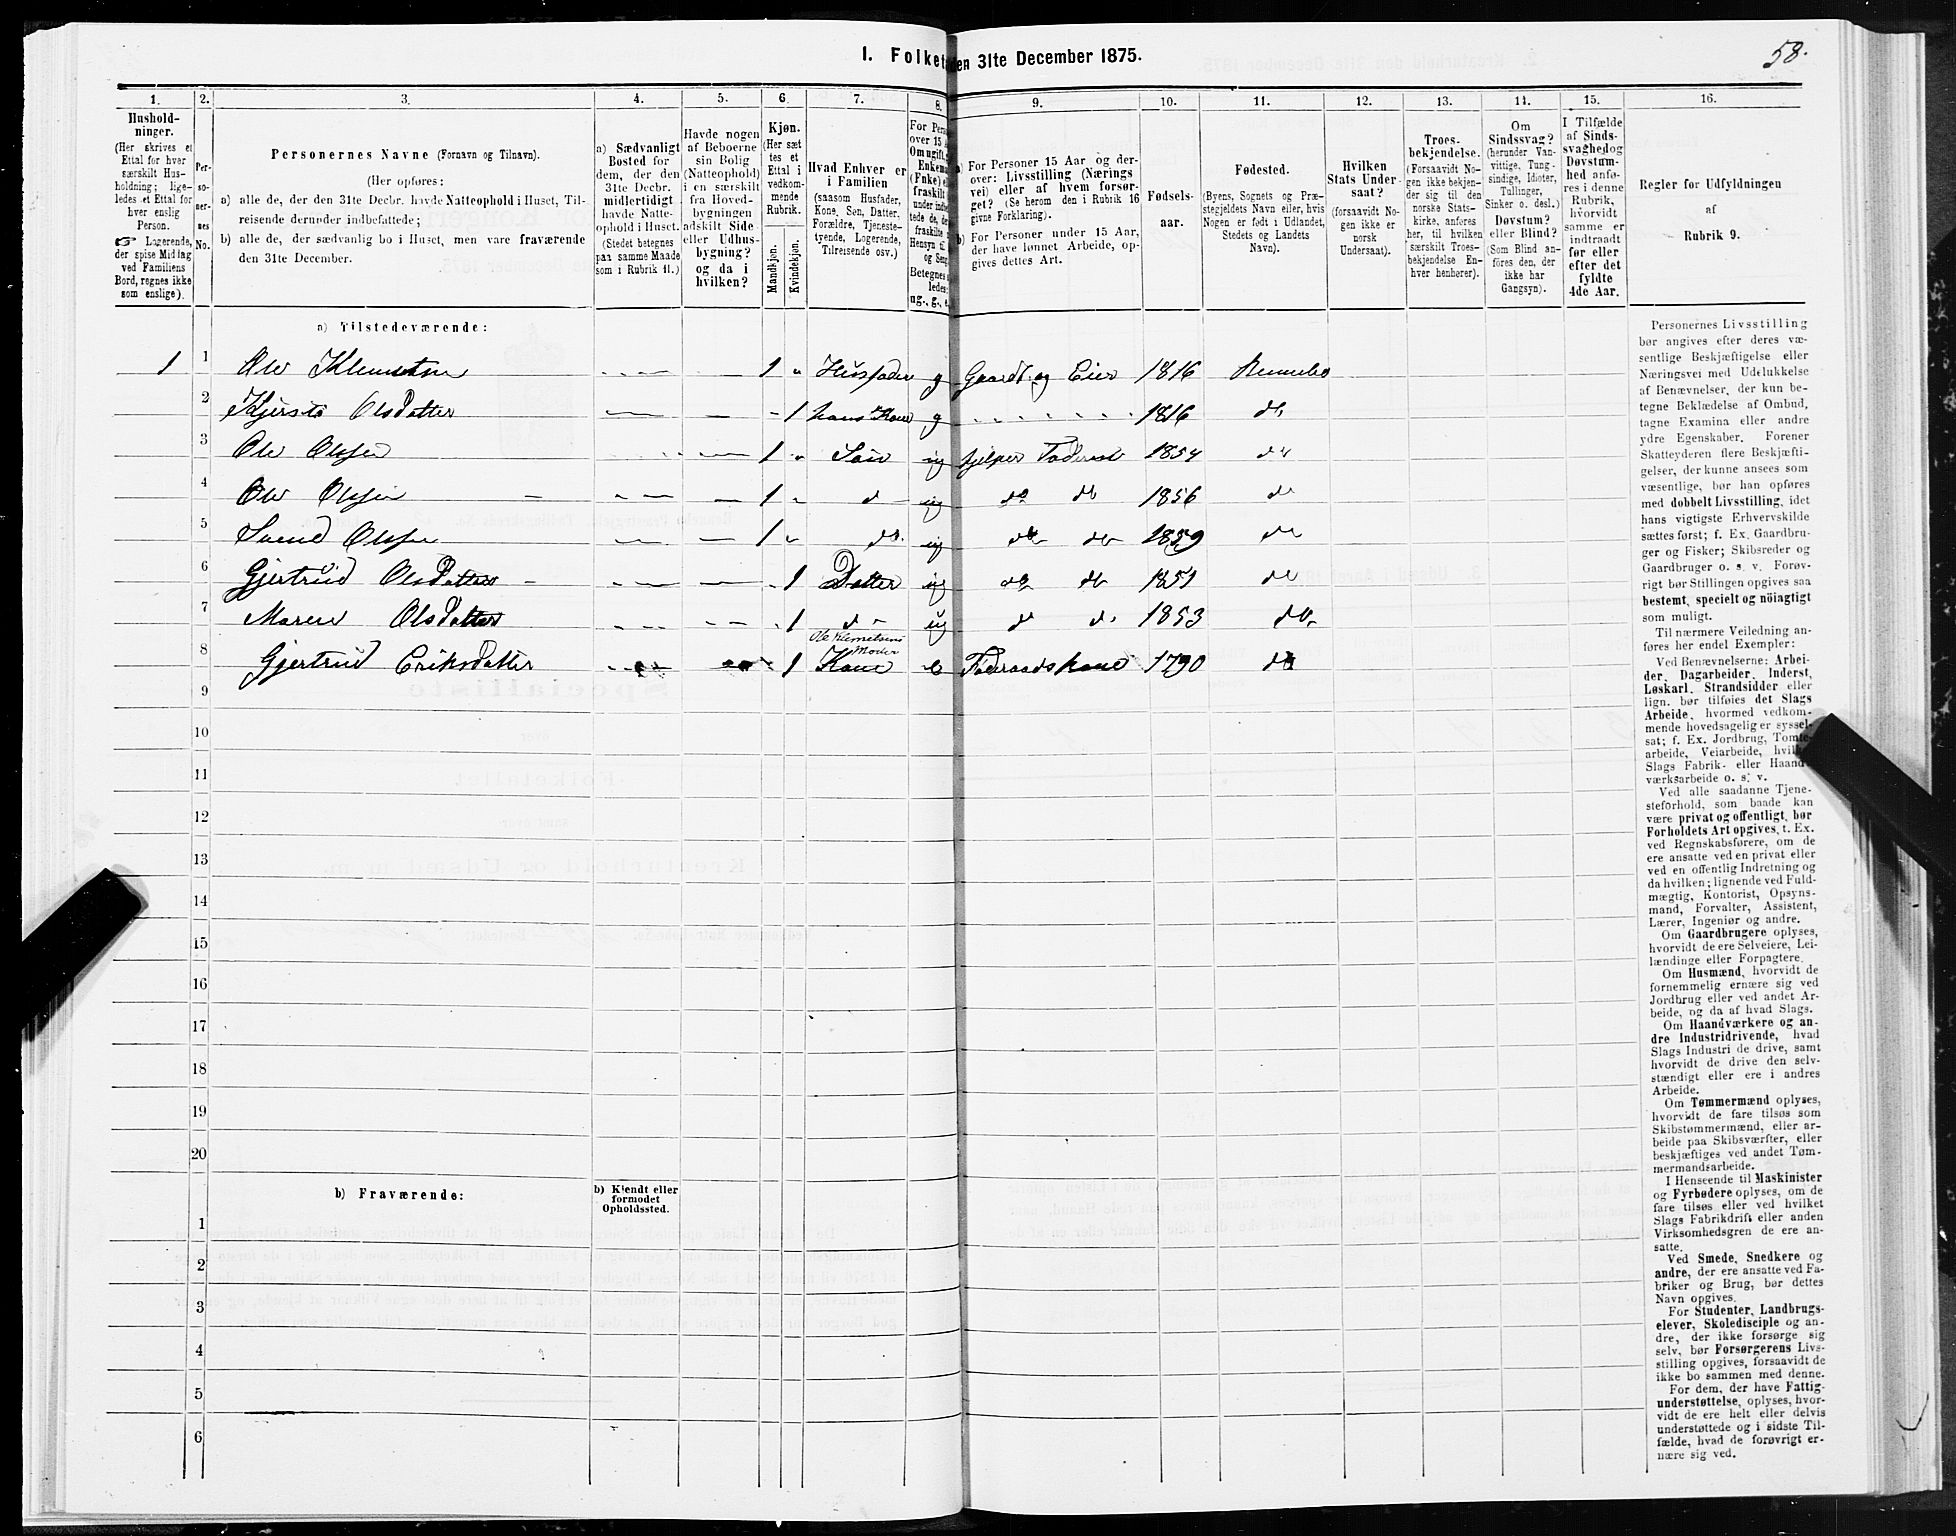 I. Folket en 31te December 1875.
58.
1. 2. 3. 4. 5. 6. 7. 8. 9. 10. 11. 12. 13. 14. 15. 16.
Hushold-
ninger.
(Her skrives et
Ettal for hver
særskilt Hus-
holdning; lige-
ledes et Ettal for
hver enslig
Person.
☞ Logerende,
der spise Middag
ved Familiens
Bord, regnes ikke
som enslige).
Per-
so-
ner-
nes
No.
Personernes Navne (Fornavn og Tilnavn).
(Her opføres:
a) alle de, der den 31te Decbr. havde Natteophold i Huset, Til-
reisende derunder indbefattede;
b) alle de, der sædvanlig bo i Huset, men vare fraværende
den 31te December.
a) Sædvanligt
Bosted for
dem, der den
31te Decbr.
midlertidigt
havde Natte-
ophold i Huset.
(Stedet betegnes
paa samme Maade
som i Rubrik 11.)
Havde nogen
af Beboerne
sin Bolig
(Natteophold)
i en særskilt
fra Hoved-
bygningen
adskilt Side
eller Udhus-
bygning?
og da i
hvilken?
Kjøn.
(Her sæt
tes et
Ettal i
vedkom-
mende
Rubrik.
Mandkjøn.
Kvindekjøn.
Hvad Enhver er
i Familien
(saasom Husfader,
Kone, Søn, Datter,
Forældre, Tjeneste-
tyende, Logerende,
Tilreisende osv.)
For Pers
over 15 A
Om ugift,
Enkema
(Enke) e
fraskilt
under indbe
tede de, de
fraskilte
Hensyn til
og Seng
Betegnes s
ledes:
ug., g., e.
a) For Personer 15 Aar og der-
over: Livsstilling (Nærings
vei) eller af hvem forsør-
get? (Se herom den i Rubrik 16
givne Forklaring).
b) For Personer under 15 Aar,
der have lønnet Arbeide, op-
gives dettes Art.
Fødsels-
aar.
Fødested.
(Byens, Sognets og Præ-
stegjeldets Navn eller, hvis
Nogen er født i Udlandet,
Stedets og Landets
Navn).
Hvilken
Stats Under-
saat?
(forsaavidt No-
gen ikke er
norsk
Undersaat).
Troes-
bekjendelse.
(Forsaavidt No-
gen ikke bekjen-
der sig til den
norske Stats-
kirke, anføres
her, til hvilken
særskilt Troes-
bekjendelse En-
hver henhører).
Om
Sindssvag?
(herunder Van-
vittige, Tung-
sindige, Idioter,
Tullinger,
Sinker o. desl.)
Døvstum?
eller Blind?
(Som Blind an-
føres den, der
ikke har
Gangsyn).
I Tilfælde
af Sinds-
svaghed og
Døvstum-
hed anfø-
res i denne
Rubrik,
hvorvidt
samme er
indtraadt
før eller
efter det
fyldte
4de Aar.
Regler for Udfyldningen
af
Rubrik 9.
a) Tilstedeværende:
1 1 Ole Klemetsen 1 Husfader g Gaardb. og Eier 1816 Rennebo
2 Kjersti Olsdatter 1 hans Kone g 1816 do
3 Ole Olssen 1 Søn ug hjelper Faderen 1854 do
4 Ole Olssen 1 d ug do do 1856 do
5 Svend Olssen 1 do. ug do do 1859 do
6 Gjertrud Olsdatter 1 Datter ug do do 1851 do
7 Maren Olsdatter 1 d ug d d. 1853 do
Ole Klemetsens
Moder
8 Gjertrud Eriksdatter 1 Kone e Føderaadskone 1790 do
9
10
11
12
13
14
15
16
17
18
19
20
b) Fraværende:
b) Kjendt eller
formodet
Opholdssted.
1
2
3
4
5
6
Personernes Livsstilling
bør angives efter deres væ-
sentlige Beskjæftigelse eller
Næringsvei med Udelukkelse
af Benævnelser, der kun be-
tegne Beklædelse af Ombud,
tagne Examina eller andre
ydre Egenskaber. Forener
Skatteyderen flere Beskjæfti-
gelser, der kunne ansees som
væsentlige, bør han opføres
med dobbelt Livsstilling, idet
hans vigtigste Erhvervskilde
sættes først; f. Ex. Gaardbru-
ger og Fisker; Skibsreder og
Gaardbruger o. s. v. Forøv-
rigt bør Stillingen opgives saa
bestemt, specielt og nöiagtigt
som muligt.
Til nærmere Veiledning an-
føres her endel Exempler:
Ved Benævnelserne: Arbei-
der, Dagarbeider, Inderst,
Løskarl, Strandsidder eller
lign. bør tilføies det Slags
Arbeide, hvormed vedkom-
mende hovedsagelig er syssel-
sat; f. Ex. Jordbrug, Tomte-
arbeide, Veiarbeide, hvilket
Slags Fabrik- eller Haand-
værksarbeide o. s. v.
Ved alle saadanne Tjene-
steforhold, som baade kan
være privat og offentligt, bør
Forholdets Art opgives, t. Ex.
ved Regnskabsførere, om de
ere ansatte ved en privat eller
ved en offentlig Indretning og
da hvilken; lignende ved Fuld-
mægtig, Kontorist, Opsyns-
mand, Forvalter, Assistent,
Lærer, Ingeniør og andre.
Om Gaardbrugere oplyses,
hvorvidt de ere Selveiere, Lei-
lændinge eller Forpagtere.
Om Husmænd, hvorvidt de
fornemmelig ernære sig ved
Jordbrug eller ved andet Ar-
beide, og da af hvad Slags.
Om Haandværkere og an-
dre Industridrivende, hvad
Slags Industri de drive, samt
hvorvidt de drive den selv-
stændigt eller ere i andres
Arbeide.
Om Tømmermænd oplyses,
hvorvidt de fare tilsøs som
Skibstømmermænd, eller ar-
beide paa Skibsværfter, eller
beskjæftiges ved andet Tøm-
mermandsarbeide.
I Henseende til Maskinister
og Fyrbødere oplyses, om de
fare tilsøs eller ved hvilket
Slags Fabrikdrift eller anden
Virksomhedsgren de ere an-
satte.
Ved Smede, Snedkere og
andre, der ere ansatte ved Fa-
briker og Brug, bør dettes
Navn opgives.
For Studenter, Landbrugs-
elever, Skoledisciple og an-
dre, der ikke forsørge sig
selv, bør Forsørgerens Livs-
stilling opgives, forsaavidt de
ikke bo sammen med denne.
For dem, der have Fattig-
understøttelse, oplyses, hvor-
vidt de ere helt eller delvis
understøttede og i sidste Til-
fælde, hvad de forøvrigt er-
nære sig ved.